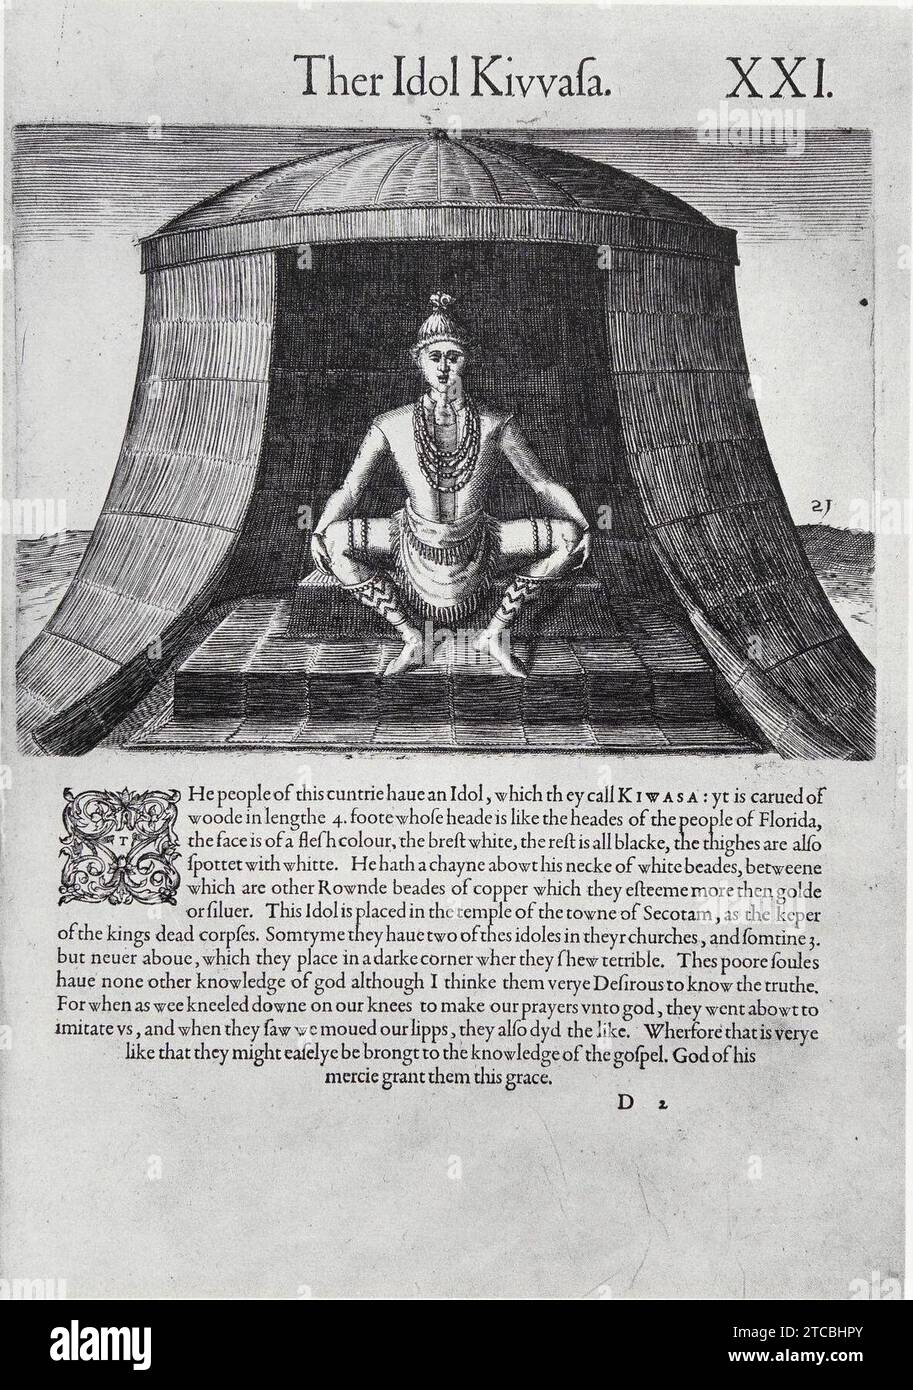 Ther Idol Kivvaſa. XXI.
21
THe people of this cuntrie haue an Idol, which th ey call KIWASA: yt is carued of
woode in lengthe 4. foote whoſe heade is like the heades of the people of Florida,
the face is of a fleſh colour, the breſt white, the reſt is all blacke, the thighes are alſo
ſpottet with whitte. He hath a chayne abowt his necke of white beades, betweene
which are other Rownde beades of copper which they eſteeme more then golde
or ſiluer. This Idol is placed in the temple of the towne of Secotam, as the keper
of the kings dead corpſes. Somtyme they haue two of thes idoles in theyr churches, and ſomtine 3.
but neuer aboue, which they place in a darke corner wher they ſhew terrible. Thes poore ſoules
haue none other knowledge of god although I thinke them verye Deſirous to know the truthe.
For when as wee kneeled downe on our knees to make our prayers vnto god, they went abowt to
imitate vs, and when they ſaw we moued our lipps, they alſo dyd the like. Wherfore that is verye
like that they might eaſelye be brongt to the knowledge of the goſpel. God of his
mercie grant them this grace.
D 2
alamy
Image ID: 2TCBHPY
www.alamy.com